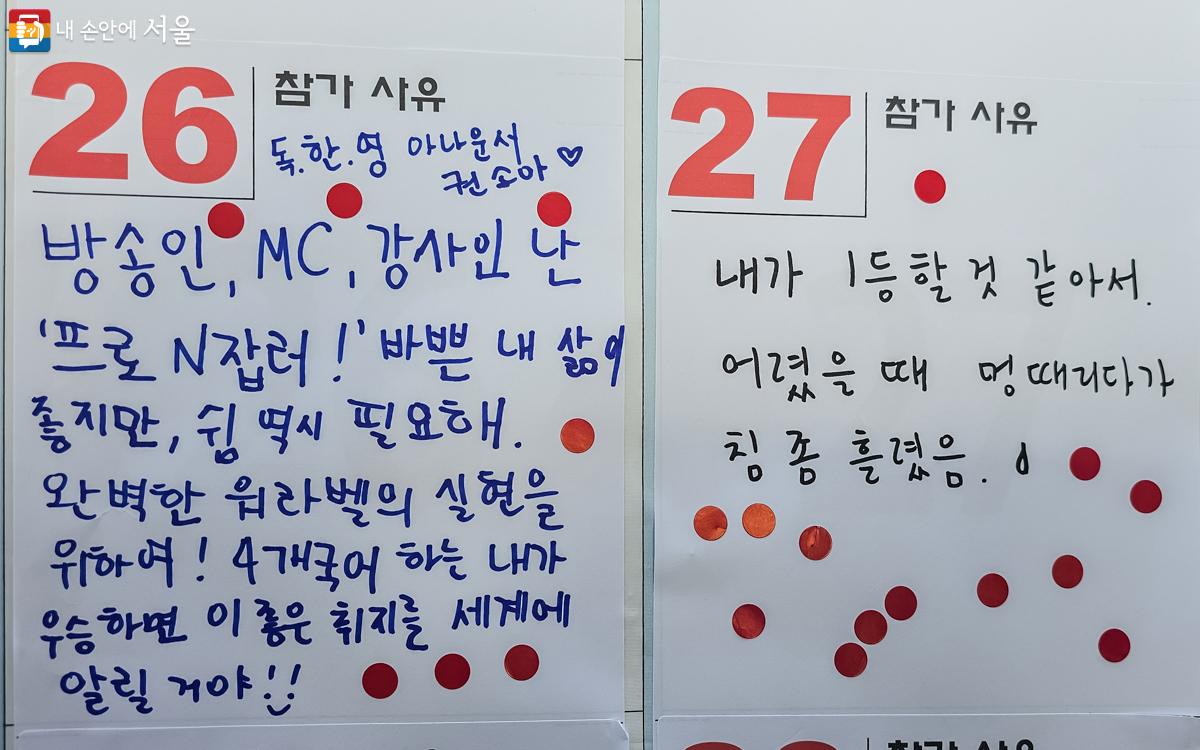 내 손안에 서울
26
참가 사유
독.한.영 아나운서
권소아 ♡
방송인, MC, 강사인 난
'프로 N잡러!' 바쁜 내 삶이
좋지만, 쉼 역시 필요해.
완벽한 워라벨의 실현을
위하여! 4개국어 하는 내가
우승하면 이 좋은 취지를 세계에
알릴 거야!!
27
참가 사유
내가 1등할 것 같아서.
어렸을 때 멍때리다가
침 좀 흘렸음.
참가 사유